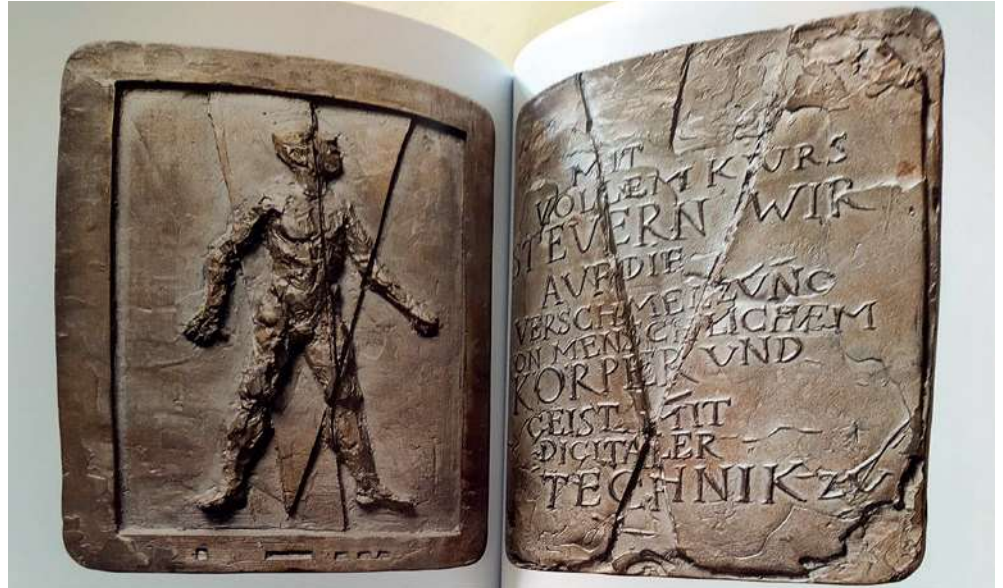 MIT
VOLLEM KURS
STEUERN WIR
AUF DIE
VERSCHMELZUNG
VON MENSCHLICHEM
KÖRPER UND
GEIST MIT
DIGITALER
TECHNIK ZU